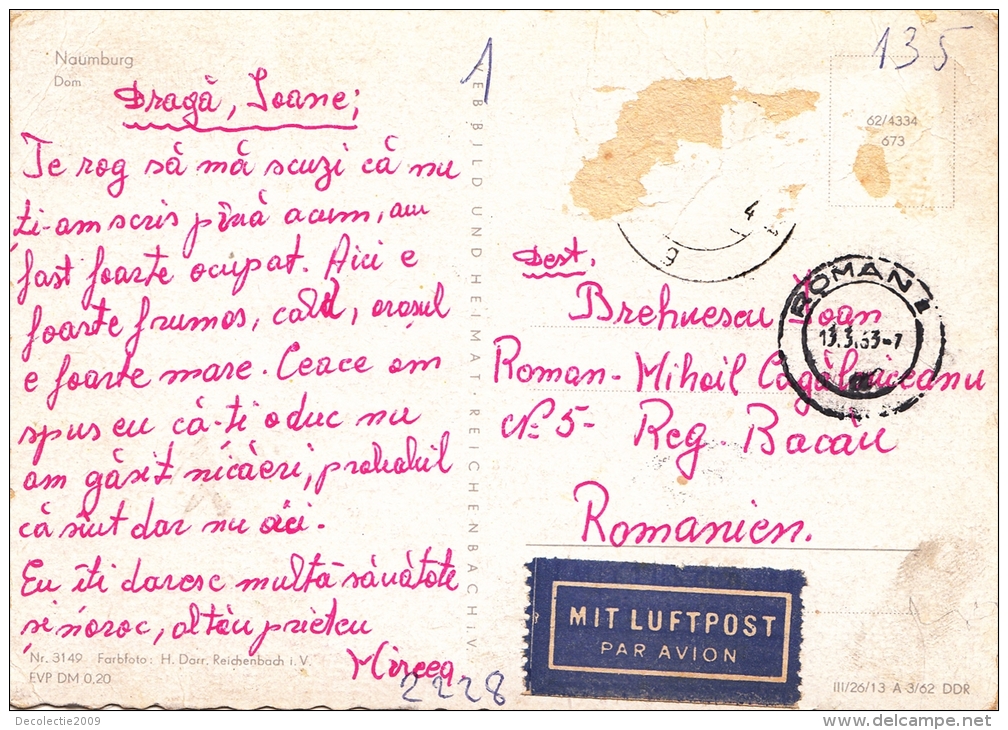 Naumburg
Dom
Dragă, Ioane;
Te rog să mă scuzi că nu
ți-am scris pînă acum, am
fost foarte ocupat. Aici e
foarte frumos, cald, orașul
e foarte mare. Ceace am
spus eu că-ți aduc nu
am găsit nicăeri, probabil
că sînt dar nu aici.
Eu îți doresc multă sănătate
și noroc, al tău prieten
Mircea
Nr. 3149 Farbfoto: H. Darr, Reichenbach i. V.
EVP DM 0,20
2228
1
VEB BILD UND HEIMAT REICHENBACH I. V.
135
62/4334
673
4
ROMAN 1
13.3.63-7
Dest.
Brehuescu Ioan
Roman - Mihail Cogălniceanu
No 5 - Reg. Bacău
Romanien.
MIT LUFTPOST
PAR AVION
III/26/13 A 3/62 DDR
Decolectie2009
www.delcampe.net